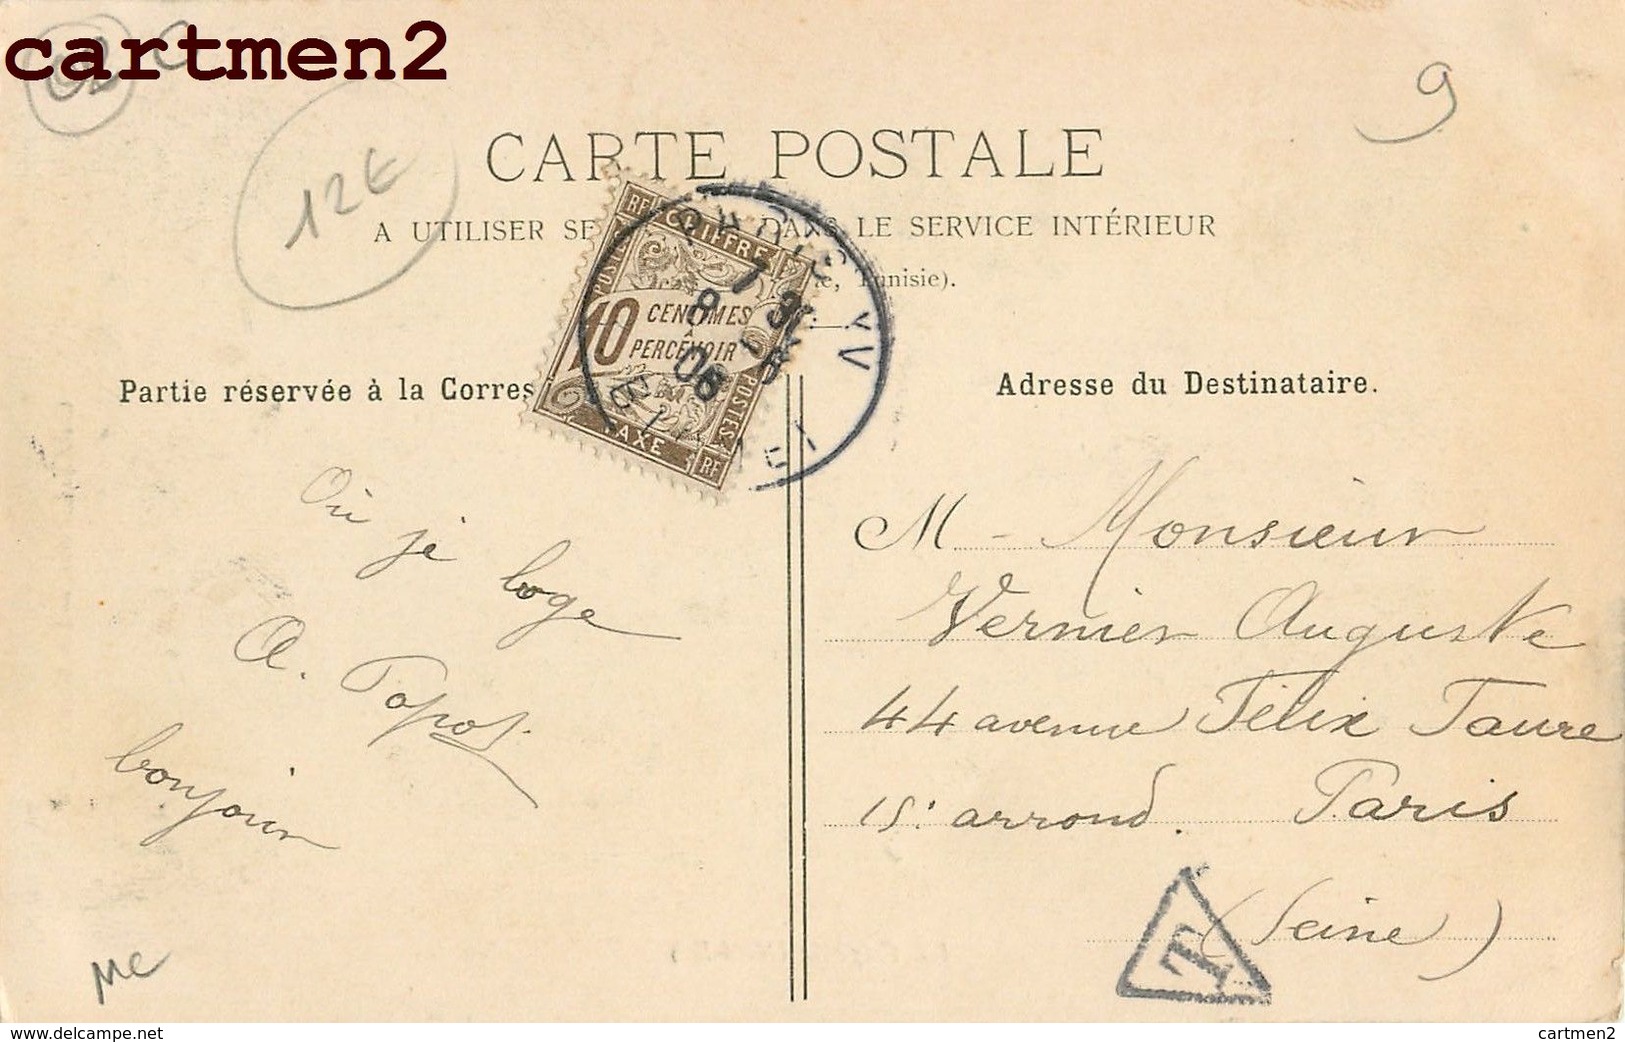 cartmen2
12€
9
CARTE POSTALE
A UTILISER SE DANS LE SERVICE INTÉRIEUR
Tunisie).
RF CHIFFRE
POSTES
10 CENTIMES
À
PERCEVOIR
POSTES
TAXE RF
PARIS XV
7 30
8
06
Partie réservée à la Corres
Adresse du Destinataire.
Où je loge
A. Topos.
bonjour
M - Monsieur
Vernier Auguste
44 avenue Félix Faure
15. arrond. Paris
(Seine)
T
MC
www.delcampe.net
cartmen2